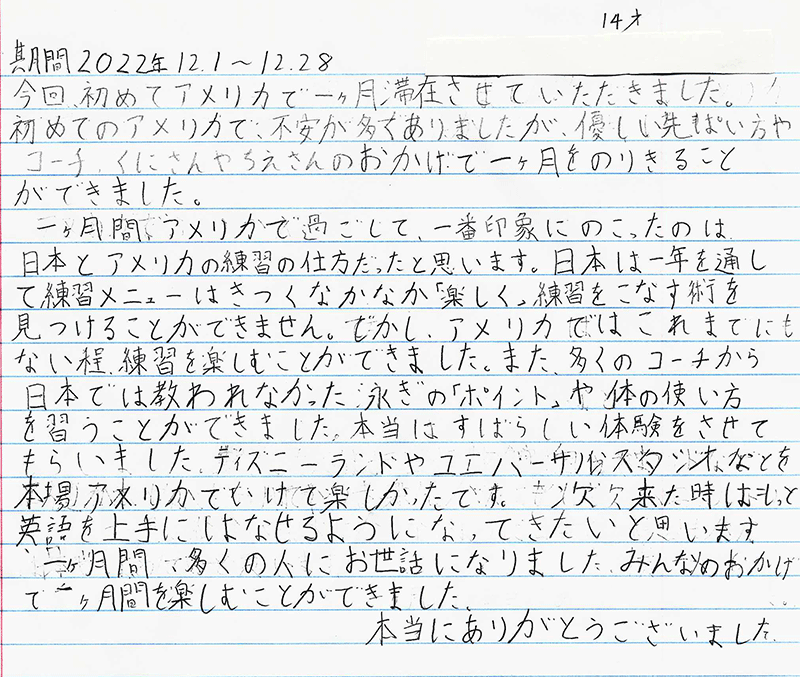 14才
期間2022年12.1〜12.28
今回、初めてアメリカで一ヶ月滞在させていただきました。
初めてのアメリカで、不安が多くありましたが、優しい先ぱい方や
コーチ、くにさんやちえさんのおかげで一ヶ月をのりきること
ができました。
一ヶ月間、アメリカで過ごして、一番印象にのこったのは、
日本とアメリカの練習の仕方だったと思います。日本は一年を通し
て練習メニューはきつくなかなか「楽しく」練習をこなす術を
見つけることができません。しかし、アメリカではこれまでにも
ない程、練習を楽しむことができました。また、多くのコーチから
日本では教われなかった泳ぎの「ポイント」や体の使い方
を習うことができました。本当はすばらしい体験をさせて
もらいました。ディズニーランドやユニバーサルスタジオなどを
本場アメリカでいけて楽しかったです。次来た時はもっと
英語を上手にはなせるようになってきたいと思います
一ヶ月間、多くの人にお世話になりました。みんなのおかげ
で一ヶ月間を楽しむことができました。
本当にありがとうございました。